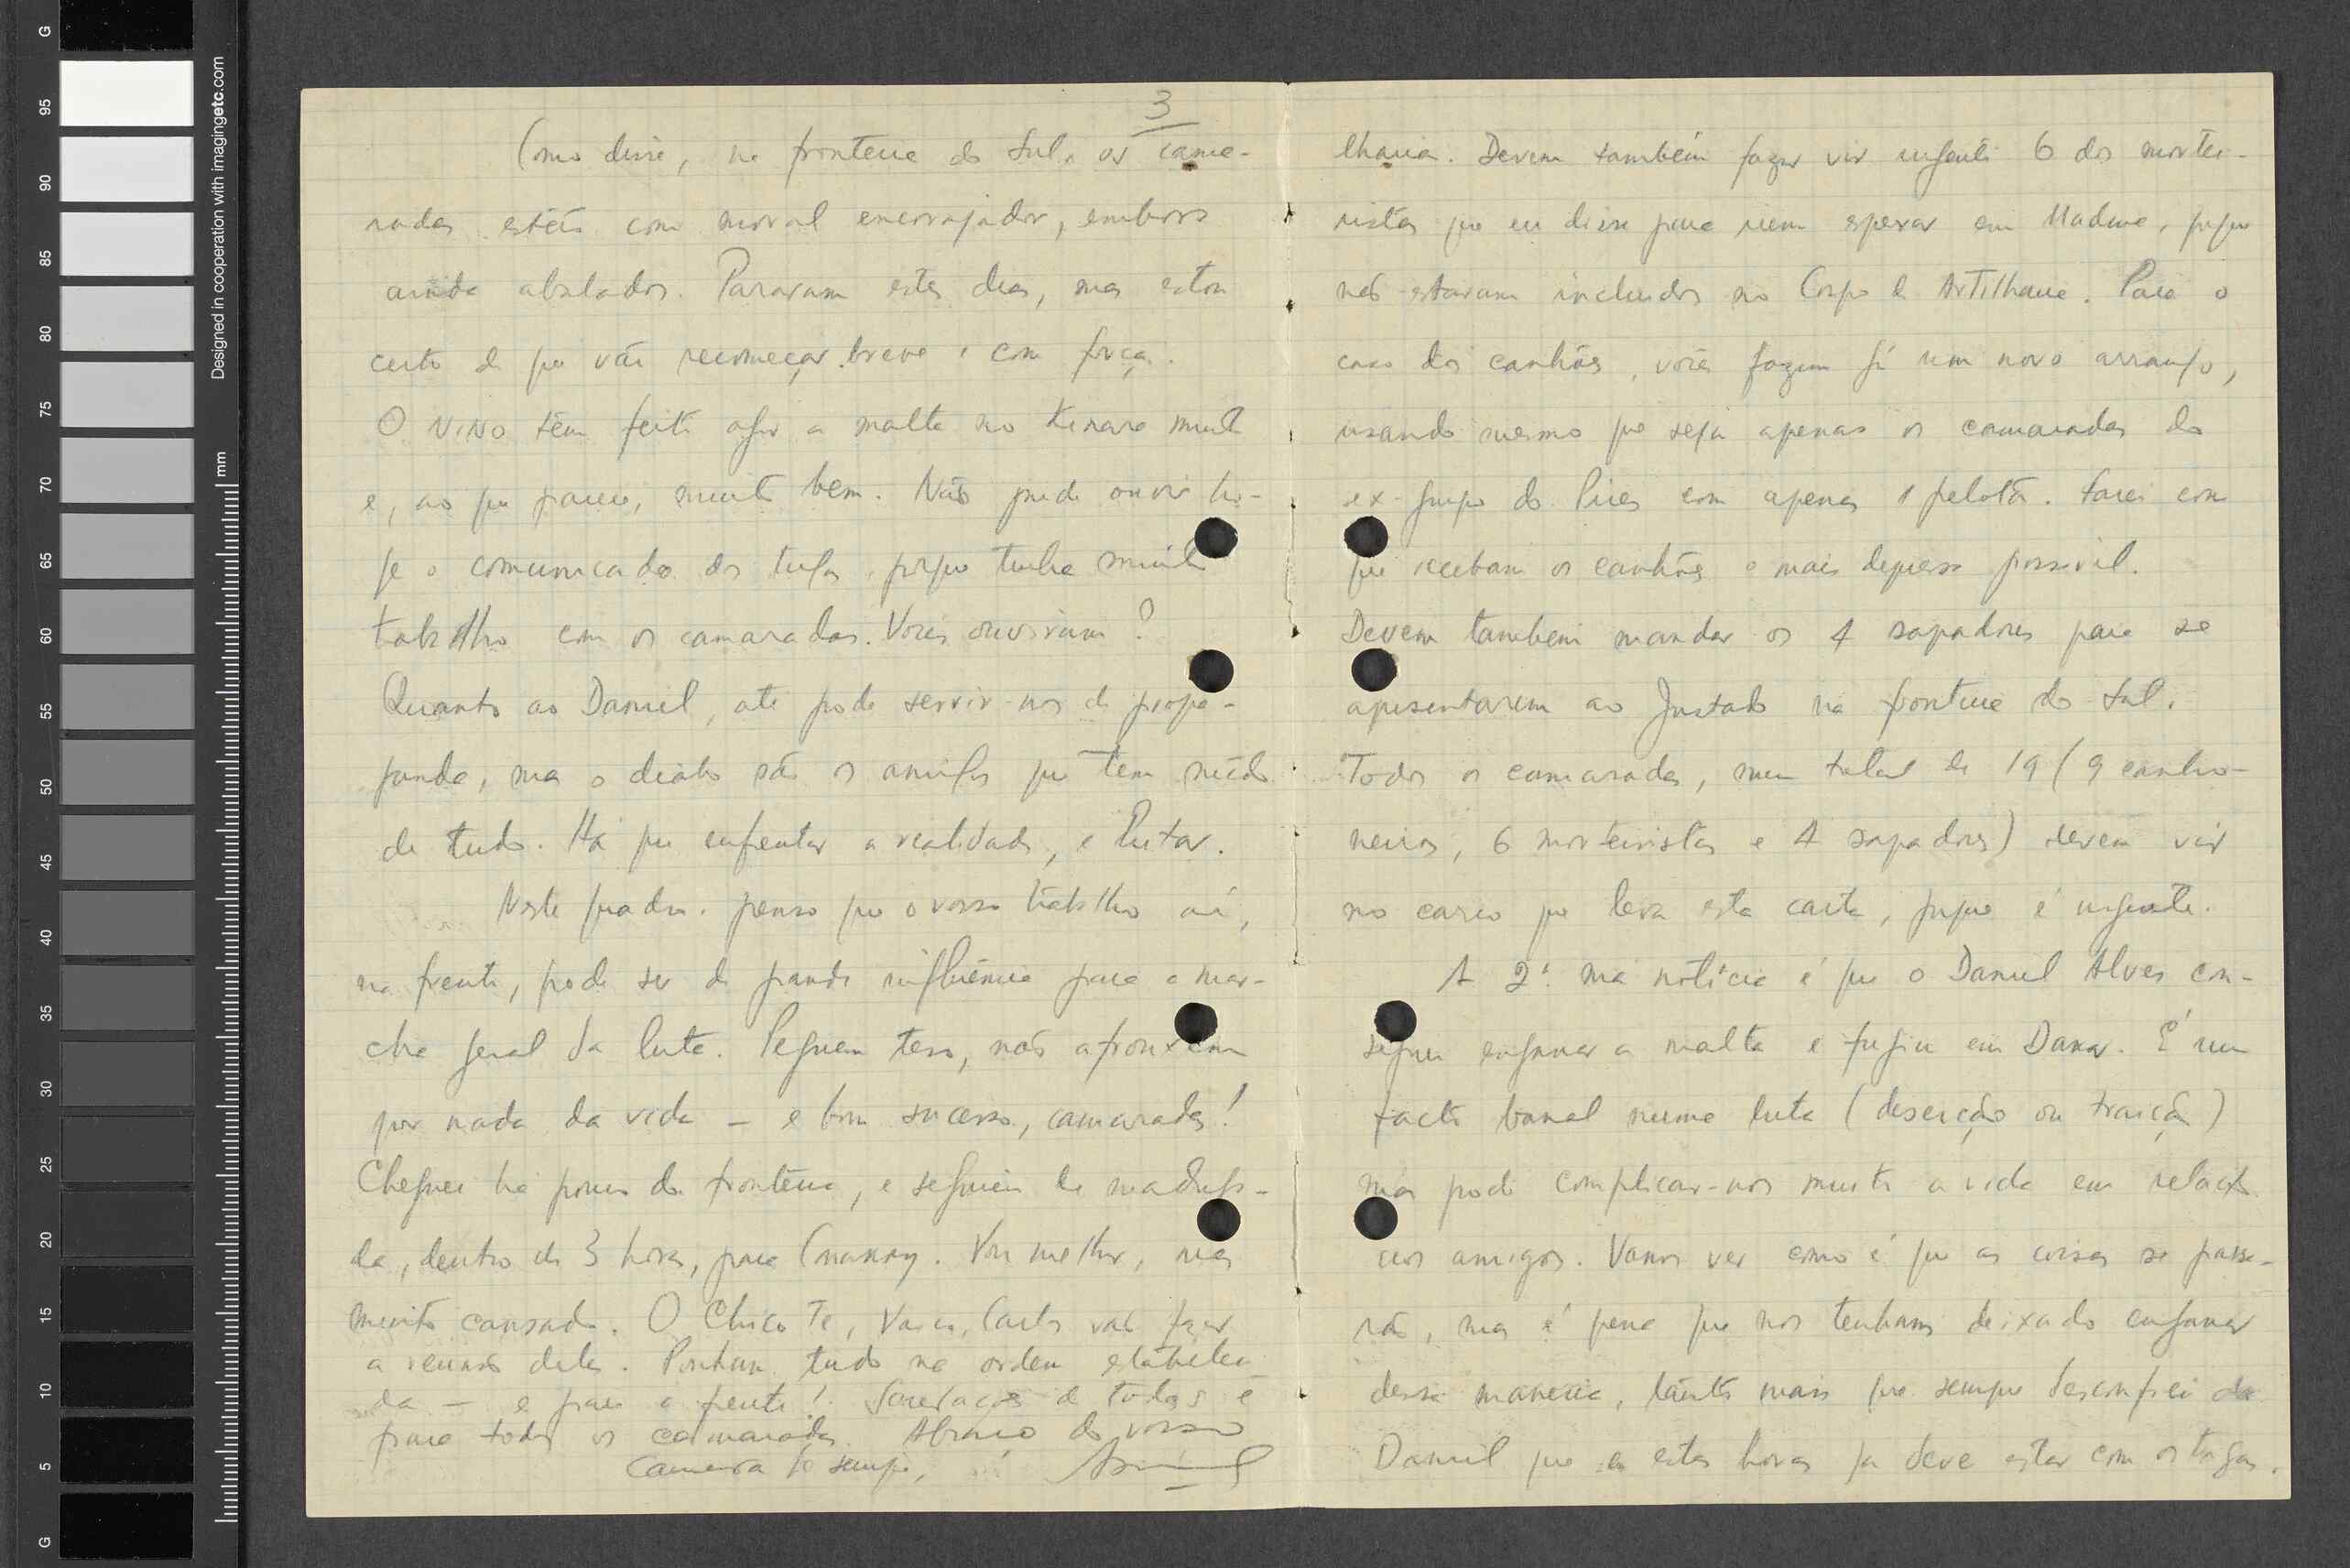 3
Como disse, na fronteira do Sul, os cama-
radas estão com moral encorajador, embora
ainda abalados. Pararam estes dias, mas estou
certo de que vão recomeçar breve e com força.
O NINO têm feito agir a malta no Kinara muito
e, ao que parece, muito bem. Não pude ouvir ho-
je o comunicado dos tugas, porque tinha muito
trabalho com os camaradas. Vocês ouviram?
Quanto ao Daniel, até pode servir-nos de propa-
ganda, mas o diabo são os amigos que têm medo
de tudo. Há que enfrentar a realidade, e lutar.
Neste quadro, penso que o vosso trabalho aí,
na frente, pode ser de grande influência para a mar-
cha geral da luta. Peguem teso, não afrouxem
por nada da vida — e bom sucesso, camaradas!
Cheguei há pouco da fronteira, e seguirei de madruga-
da, dentro de 3 horas, para Conakry. Vou melhor, mas
muito cansado. O Chico Te, Vasco, Carlos vão fazer
a reunião deles. Ponham tudo na ordem estabeleci
da — e para a frente! Saudações de todos e
para todos os camaradas. Abraço do vosso
camarada de sempre,
lharia. Devem também fazer vir urgente 6 dos mortei-
ristas que eu disse para irem esperar em Madina, porque
não estavam incluidos no Corpo de Artilharia. Para o
caso dos canhões, vocês fazem já um novo arranjo,
usando mesmo que seja apenas os camaradas do
ex-grupo do Pires com apenas 1 pelotão. Farei com
que recebam os canhões o mais depressa possível.
Devem também mandar os 4 sapadores para se
apresentarem ao Justado na fronteira do Sul.
Todos os camaradas, num total de 19 (9 canho-
neiros, 6 morteiristas e 4 sapadores) devem vir
no carro que leva esta carta, porque é urgente.
A 2ª má notícia é que o Daniel Alves con-
seguiu enganar a malta e fugiu em Dakar. É um
facto banal numa luta (deserção ou traição)
mas pode complicar-nos muito a vida em relação
aos amigos. Vamos ver como é que as coisas se passa-
rão, mas é pena que nos tenham deixado enganar
dessa maneira, tanto mais que sempre desconfiei do
Daniel que a estas horas já deve estar com os tugas.